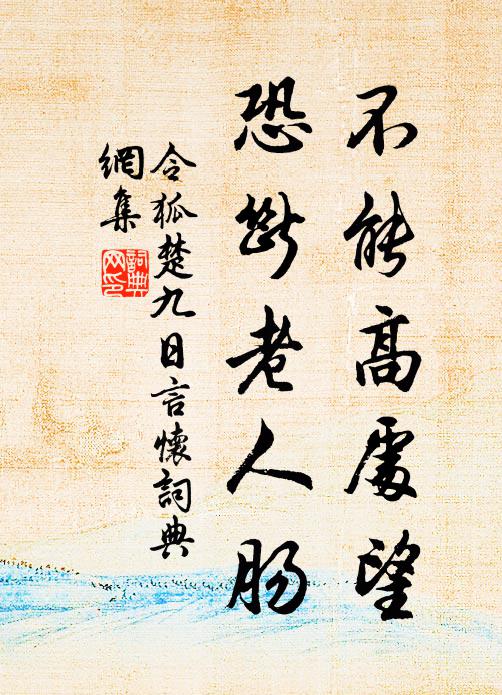 不能高處望
恐斷老人腸
令狐楚九日言懷詞典
網集
詞典
网印